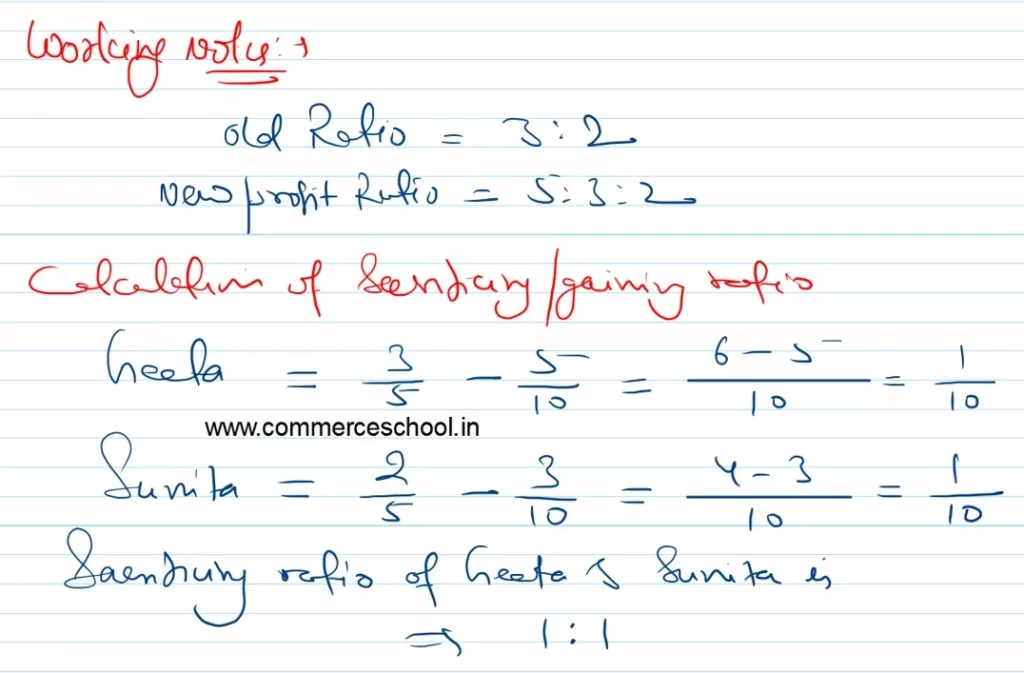 Working notes:→
Old Ratio = 3:2
New profit Ratio = 5:3:2
Calculation of Sacrificing/gaining ratio
Geeta = 3/5 - 5/10 = 6-5/10 = 1/10
www.commerceschool.in
Sunita = 2/5 - 3/10 = 4-3/10 = 1/10
Sacrificing ratio of Geeta & Sunita is
⇒ 1:1